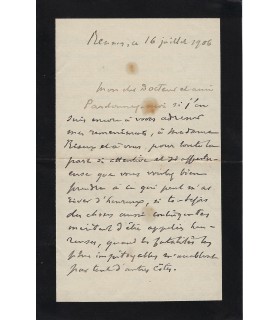 Rennes, ce 16 juillet 1906
Mon cher Docteur et ami
Pardonnez-moi si j'en
suis encore à vous adresser
mes remerciements, à Madame
et à vous, pour toute la
part si attentive et si affectu-
euse que vous voulez bien
prendre à ce qui peut m'ar-
river d'heureux, si tant est que
des choses aussi contingentes
méritent d'être appelées heu-
reuses, quand les fatalités les
plus impitoyables m'accablent
par tant d'autres côtés.